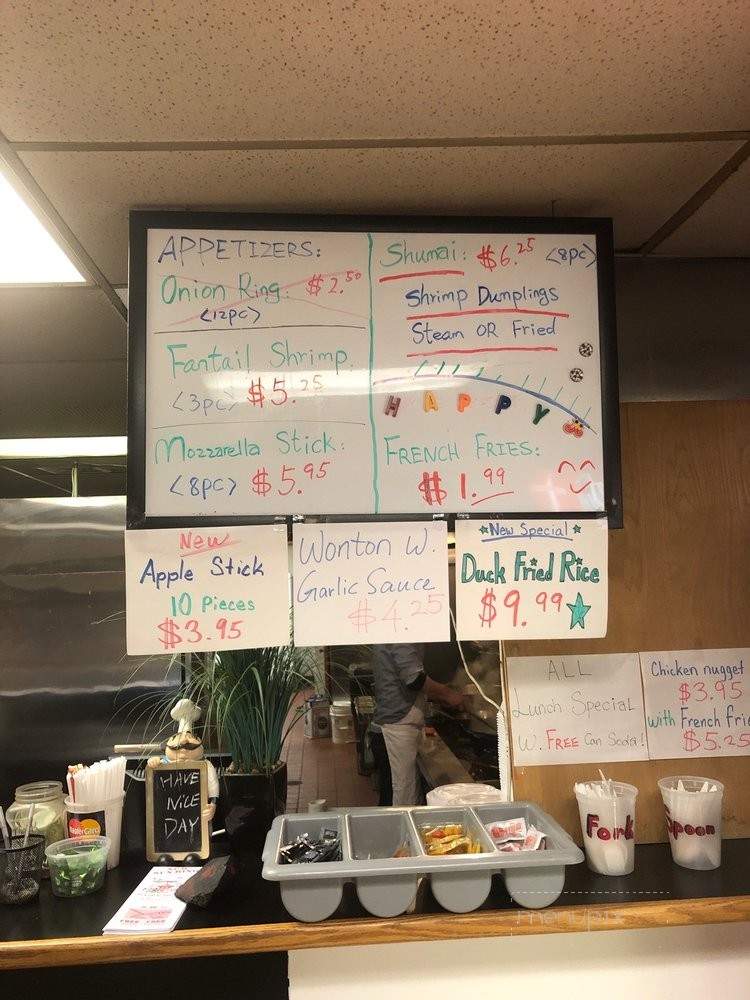 APPETIZERS:
Onion Ring: $2.50
<12pc>
Fantail Shrimp.
<3pc> $5.25
Mozzarella Stick:
<8pc> $5.95
Shumai: $6.25 <8pc>
Shrimp Dumplings
Steam OR Fried
HAPPY
FRENCH FRIES:
$1.99
New
Apple Stick
10 Pieces
$3.95
Wonton W.
Garlic Sauce
$4.25
New Special
Duck Fried Rice
$9.99
ALL
Lunch Special
W. FREE Can Soda!
Chicken nugget
$3.95
with French Frie
$5.25
HAVE
NICE
DAY
MasterCard
Fork
Spoon
menupix